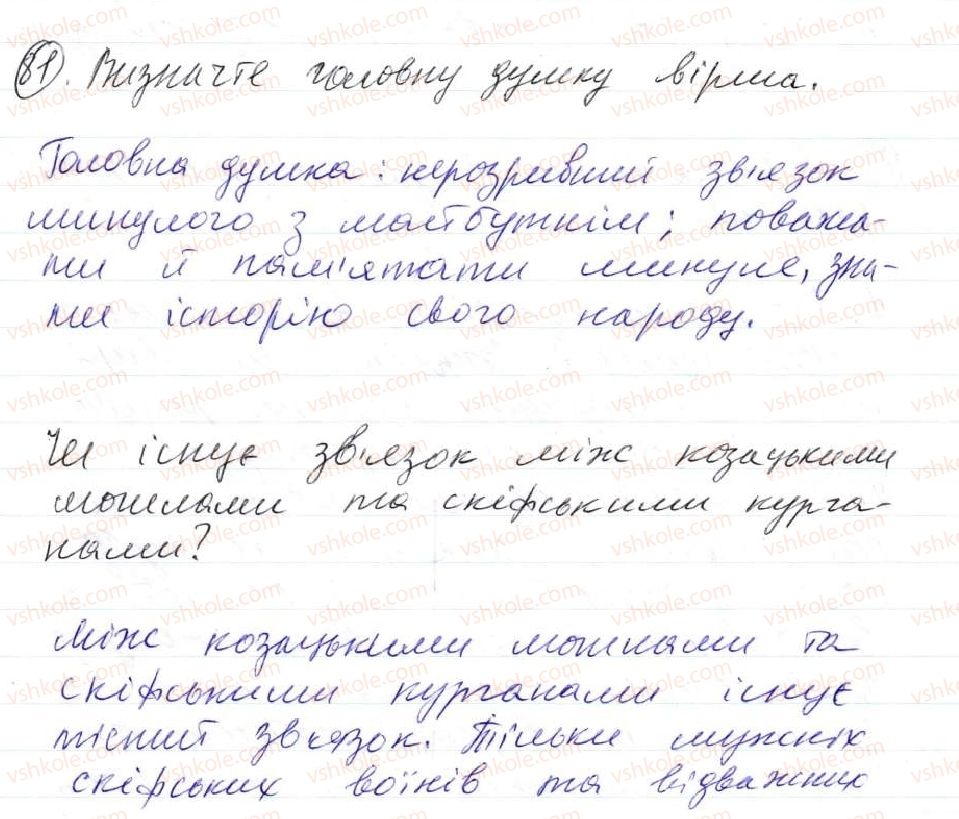 81. Визначте головну думку вірша.
Головна думка: нерозривний зв'язок
минулого з майбутнім; поважа-
ти й пам'ятати минуле, зна-
ти історію свого народу.
Чи існує зв'язок між козацькими
могилами та скіфськими курга-
нами?
Між козацькими могилами та
скіфськими курганами існує
тісний зв'язок. Тільки мужніх
скіфських воїнів та відважних